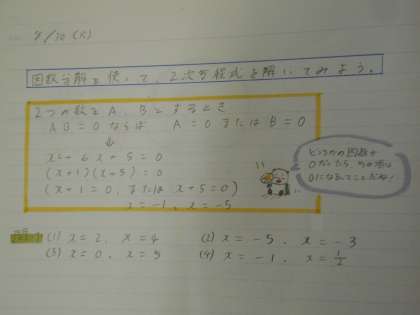 9/10(火)
因数分解を使って、2次方程式を解いてみよう。
2つの数をA、Bとするとき
AB=0 ならば A=0 または B=0
↓
x²+6x+5=0
(x+1)(x+5)=0
(x+1=0、または x+5=0)
x=-1、x=-5
どちらかの因数が
0だったら、
0になるってことだね!
(1) x=2、x=4
(2) x=-5、x=-3
(3) x=0、x=5
(4) x=-1、x=1/2